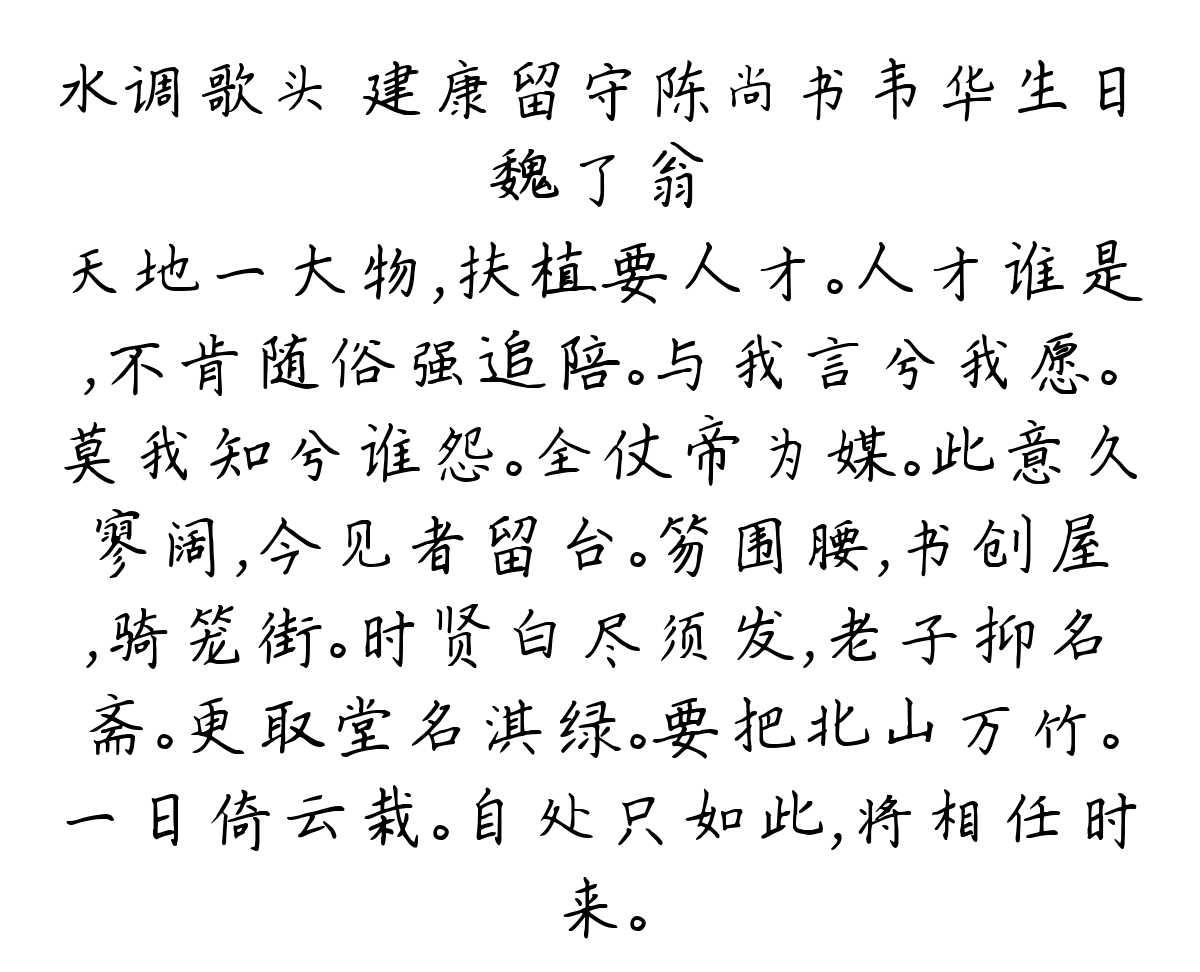 水调歌头 建康留守陈尚书韦华生日
魏了翁
天地一大物,扶植要人才。人才谁是
,不肯随俗强追陪。与我言兮我愿。
莫我知兮谁怨。全仗帝为媒。此意久
寥阔,今见者留台。笏围腰,书创屋
,骑笼街。时贤白尽须发,老子抑名
斋。更取堂名淇绿。要把北山万竹。
一日倚云栽。自处只如此,将相任时
来。